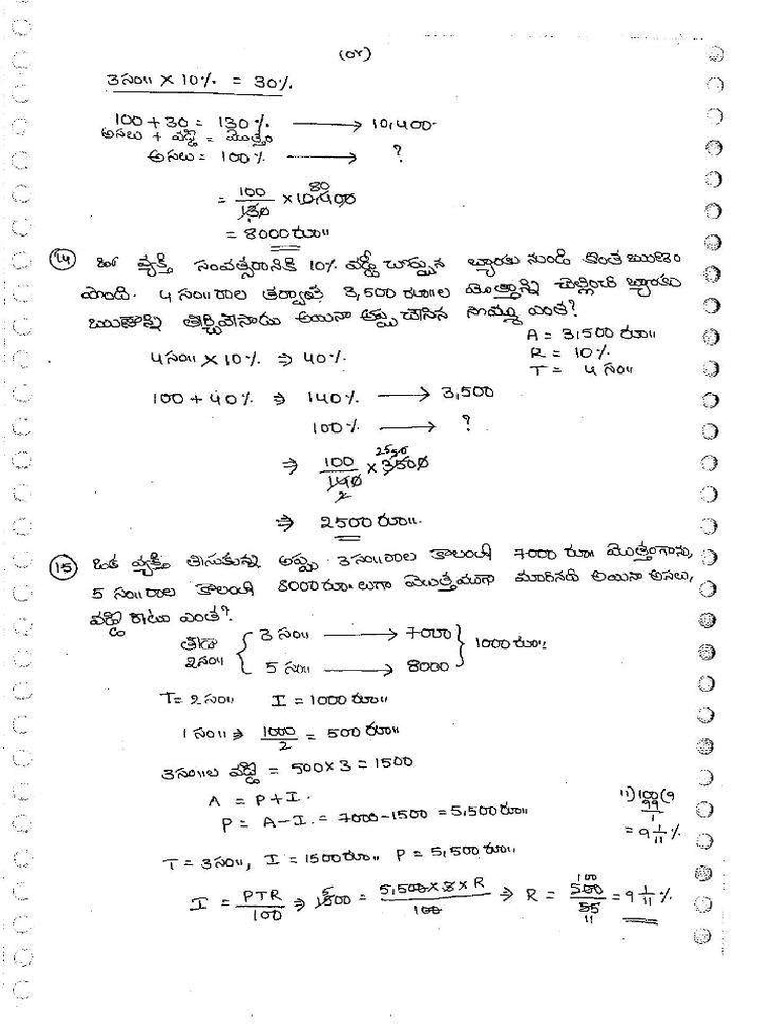 (or)
3సం॥ × 10% = 30%
100 + 30 = 130% ⟶ 10,400
అసలు + వడ్డీ = మొత్తం
అసలు = 100% ⟶ ?
= 100/130 × 10,400 80
= 8000 రూ॥
14 ఒక వ్యక్తి సంవత్సరానికి 10% వడ్డీ చొప్పున బ్యాంకు నుండి కొంత ఋణం
పొంది. 4 సం॥రాల తర్వాత 3,500 రూ॥ల మొత్తాన్ని చెల్లించి బ్యాంకు
ఋణాన్ని తీర్చివేసాడు అయినా అప్పు చేసిన సొమ్ము ఎంత?
A = 3,500 రూ॥
R = 10%
T = 4 సం॥
4సం॥ × 10% ⇒ 40%
100 + 40% ⇒ 140% ⟶ 3,500
100% ⟶ ?
⇒ 100/140 × 3500 2
⇒ 2500 రూ॥.
15 ఒక వ్యక్తి తీసుకున్న అప్పు 3సం॥రాల కాలంకి 7000 రూ॥ మొత్తంగాను,
5 సం॥రాల కాలంకి 8000రూ॥లుగా మొత్తముగా మారినది అయినా అసలు,
వడ్డీ రేటు ఎంత?
తేడా 2సం॥ { 3 సం॥ ⟶ 7000
5 సం॥ ⟶ 8000 } 1000 రూ॥
T = 2సం॥ I = 1000 రూ॥
1 సం॥ ⇒ 1000/2 = 500 రూ॥
3సం॥ల వడ్డీ = 500×3 = 1500
A = P+I.
P = A-I. = 7000-1500 = 5,500రూ॥
11)100(9
99
1
= 9 1/11 %
T = 3సం॥, I = 1500రూ॥ P = 5,500రూ॥
I = PTR/100 ⇒ 1500 = 5,500×3×R/100 ⇒ R = 500/55 = 9 1/11 %
100
5
11